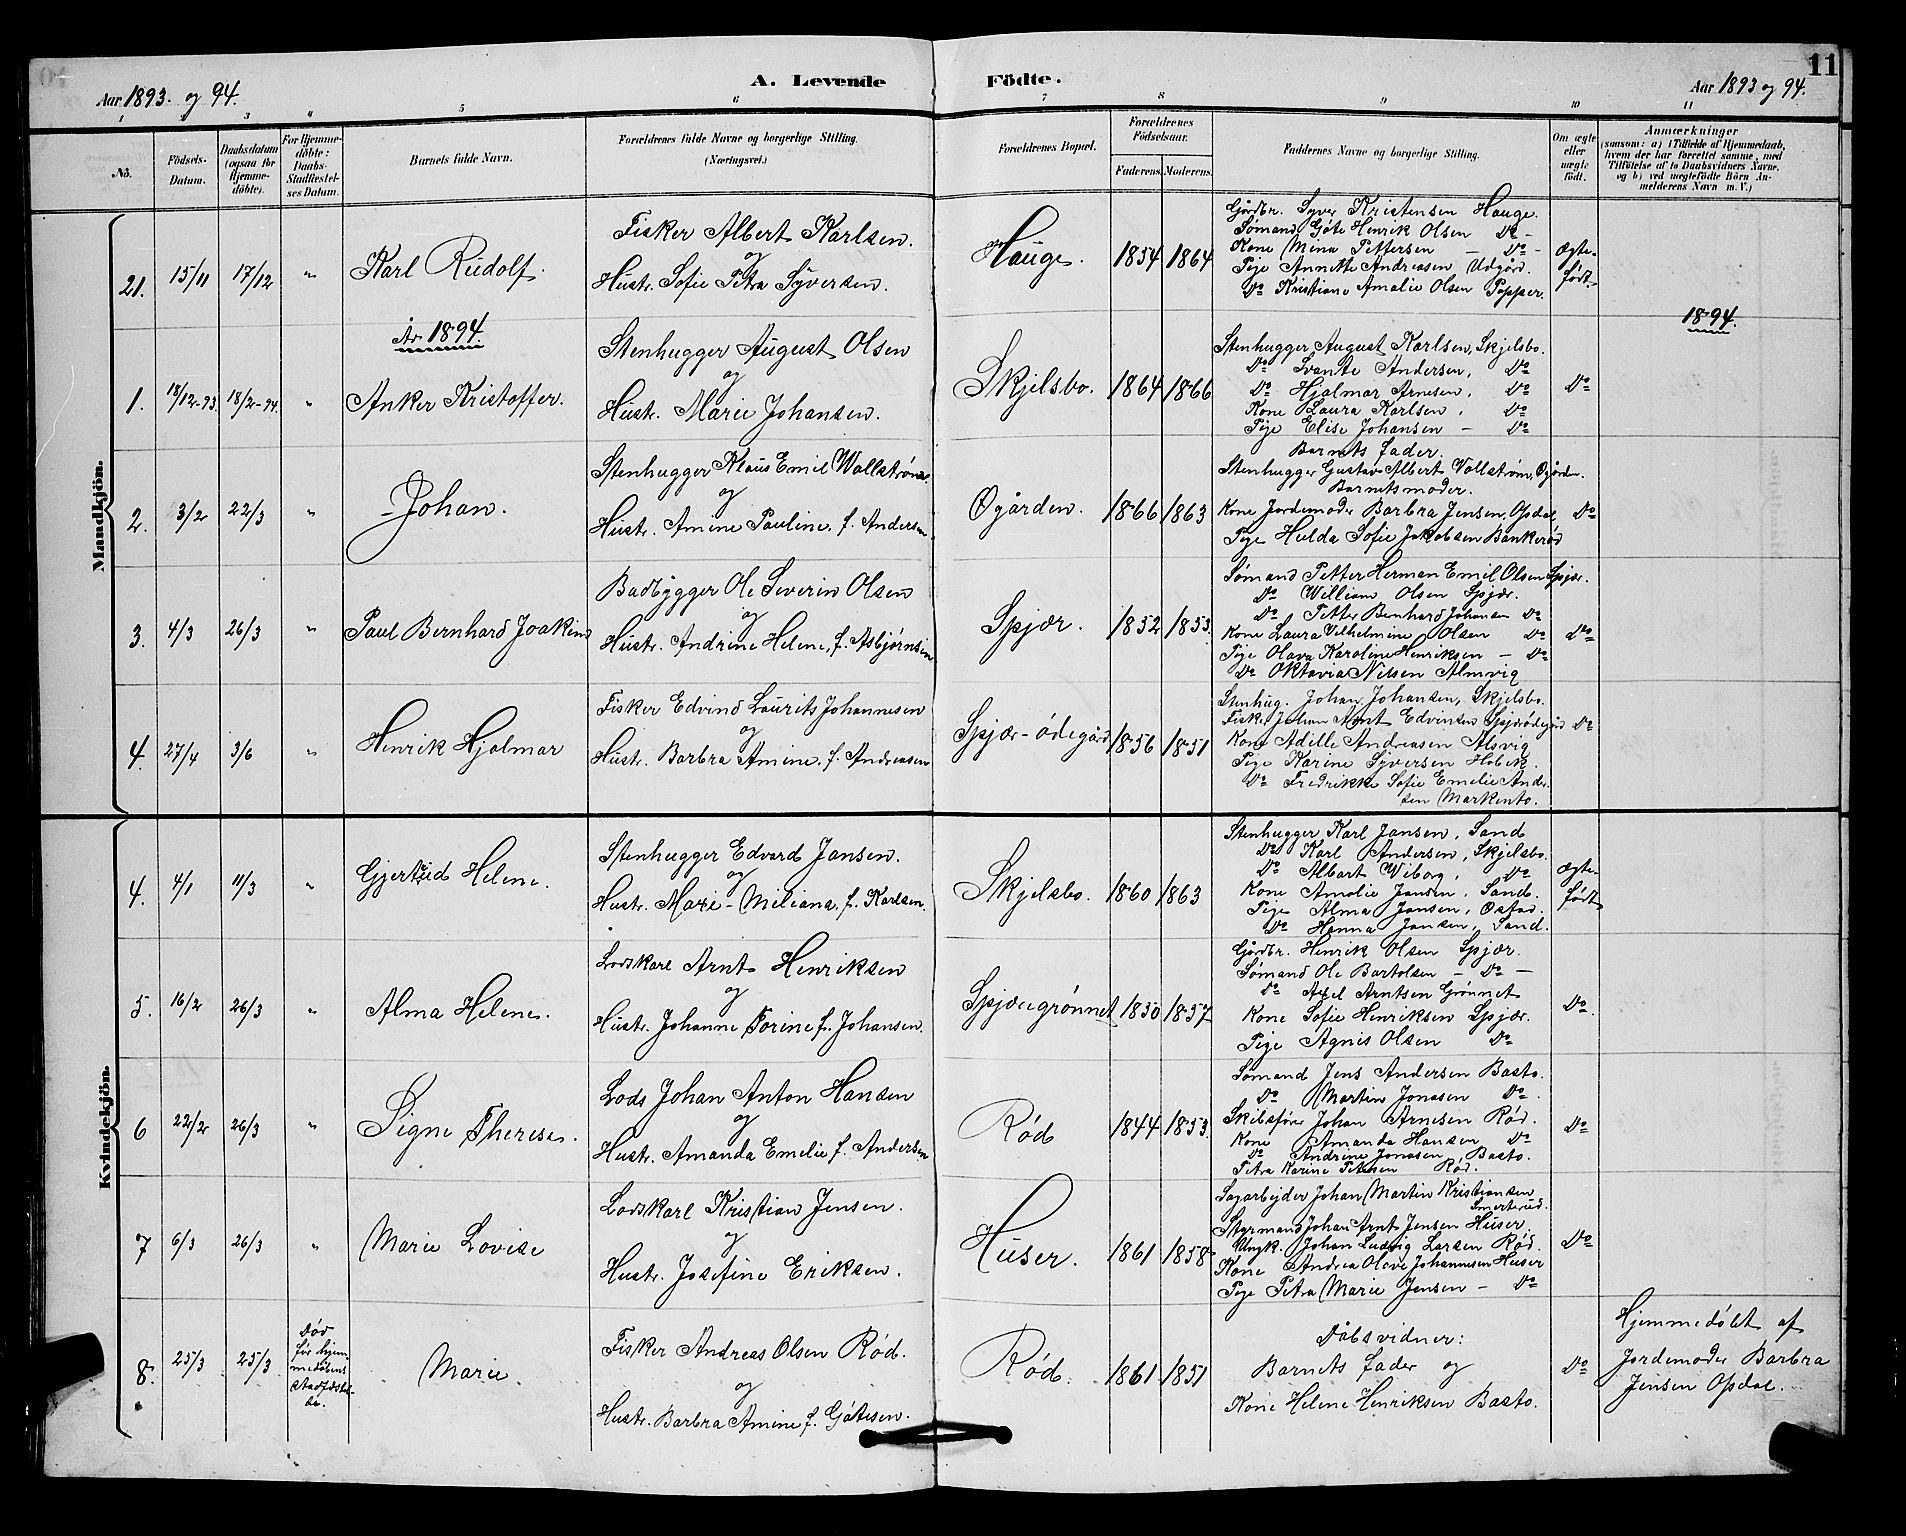 11
A. Levende Födte.
Aar 1893. og 94.
Aar 1893 og 94.
1 2 3 4 5 6 7 8 9 10 11
No.
Födsels-Datum.
Daabsdatum (ogsaa for Hjemme-döbte).
For Hjemme-döbte: Daabs-Stadfæstel-ses Datum.
Barnets fulde Navn.
Forældrenes fulde Navne og borgerlige Stilling. (Næringsvei.)
Forældrenes Bopæl.
Forældrenes Födselsaar.
Faderens. Moderens.
Faddernes Navne og borgerlige Stilling.
Om ægte eller uægte födt.
Anmærkninger
(saasom: a) i Tilfælde af Hjemmedaab, hvem der har forrettet samme, med Tilföielse af to Daabsvidners Navne. og b) ved uægtefödte Börn An-melderens Navn m. V.)
Mandkjön.
21. 15/11 17/12 " Karl Rudolf.
Fisker Albert Karlsen.
og
Hustr. Sofie Petra Syversen.
Hauge. 1854 1864
Gårdbr. Syver Kristensen Hauge.
Sømand Göte Henrik Olsen Do -
Kone Mina Pettersen - Do -
Pige Annette Andreasen, Udgård.
Do Kristiane Amalie Olsen Popper.
Ægte-født.
År 1894.
1894.
1. 18/12-93. 18/2-94. " Anker Kristoffer.
Stenhugger August Olsen
og
Hustr. Marie Johansen.
Skjelsbo. 1864 1866
Stenhugger August Karlsen, Skjelsbo.
Do Svante Andersen, Do
Do Hjalmar Arnesen, Do
Kone Laura Karlsen, Do
Pige Elise Johansen - Do
Do
2. 3/2 22/3 " Johan.
Stenhugger Klaus Emil Wallstrøm.
og
Hustr. Amine Pauline, f. Andersen.
Øgården. 1866 1863
Barnets fader.
Stenhugger Gustav Albert Vollstrøm, Øgården.
Barnets moder.
Kone Jordemoder Barbra Jensen, Opdal
Pige Hulda Sofie Jakobsen Bankerød
Do
3. 4/3 26/3 " Paul Bernhard Joakim
Badbygger Ole Severin Olsen
og
Hustr. Andrine Helene, f. Asbjørnsen
Spjær. 1852 1853.
Sømand Petter Herman Emil Olsen Spjær.
Do William Olsen Spjær.
Do Petter Bernhard Johansen Do
Kone Laura Vilhelmine Olsen Do
Pige Olava Karoline Henriksen - Do
Do Oktavia Nilsen Almvig
Do
4. 27/4 3/6 " Henrik Hjalmar
Fisker Edvind Laurits Johannesen
og
Hustr. Barbra Amine, f. Andreasen
Spjær-ødegård 1856 1851
Stenhug. Johan Johansen, Skjelsbo.
Fisker Johan Arnt Edvinsen Spjærødegård
Kone Adille Andreasen Alsvig
Pige Karine Syversen Holtek.
Do Fredrikke Sofie Emelie Ander-
sen Markento.
Do
Kvindekjön.
4. 4/1 11/3 " Gjertrud Helene.
Stenhugger Edvard Jansen.
og
Hustr. Marie-Miliana, f. Karlsen.
Skjelsbo. 1860 1863
Stenhugger Karl Jansen, Sand
Do Karl Andersen, Skjelsbo.
Do Albart Wiborg, Do
Kone Amalie Jansen, Sand.
Pige Alma Jansen,
Do Hanna Jansen, Sand.
Ægte-født
5. 16/2 26/3 " Alma Helene.
Lodskarl Arnt Henriksen
og
Hustr. Johanne Torine f. Johansen.
Spjæregrønnet 1850 1857
Gårdbr. Henrik Olsen Spjær.
Sømand Ole Bartolsen - Do -
Do Axel Arntsen Grønnet
Kone Sofie Henriksen Spjær.
Pige Agnis Olsen Do
Do.
6 22/2 26/3 " Signe Therese.
Lods Johan Anton Hansen
og
Hustr. Amanda Emelie f. Andersen
Rød 1844 1853.
Sømand Jens Andersen Basto.
Do Martin Jonasen Do.
Skibsfører Johan Arnesen Rød.
Kone Amanda Hansen Do
Do Andrine Jonasen Basto.
Petra Karine Petersen Rød.
Do
7 6/3 26/3 " Marie Lovise
Lodskarl Kristian Jensen.
og
Hustr. Josefine Eriksen.
Huser. 1861 1858
Sagarbejder Johan Martin Kristiansen
Smertered.
Styrmand Johan Arnt Jensen Huser.
Ungk. Johan Ludvig Larsen Rød.
Kone Andrea Olave Johannesen Huser
Pige Petra Marie Jensen - Do
Do
8. 25/3 25/3 Død før hjem-medåbens stadfæstel-se. Marie.
Fisker Andreas Olsen Rød.
og
Hustr. Barbra Amine f. Götesen.
Rød. 1861 1851
Dåbsvidner:
Barnets fader og
Kone Helene Henriksen Basto.
Do
Hjemmedøbt af
Jordemoder Barbra
Jensen Opdal.